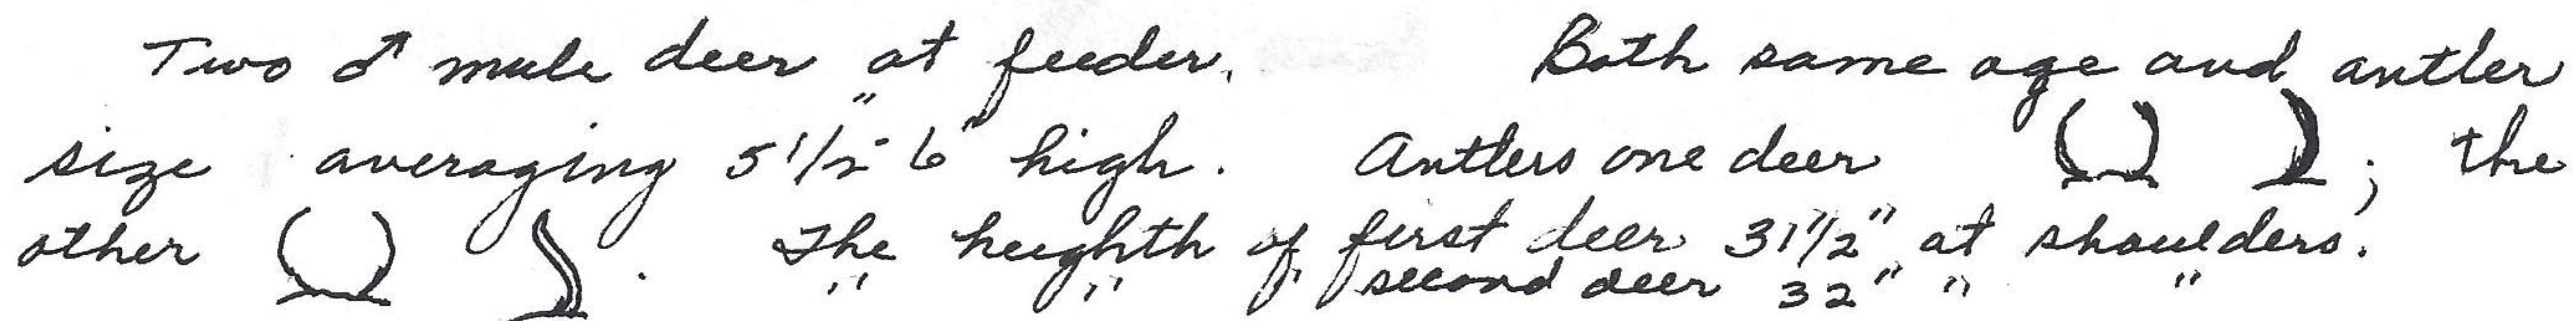 Two ♂ mule deer at feeder. Both same age and antler
size averaging 5 1/2"-6" high. Antlers one deer ; the
other . The heighth of first deer 31 1/2" at shoulders.
" " " second deer 32" " "